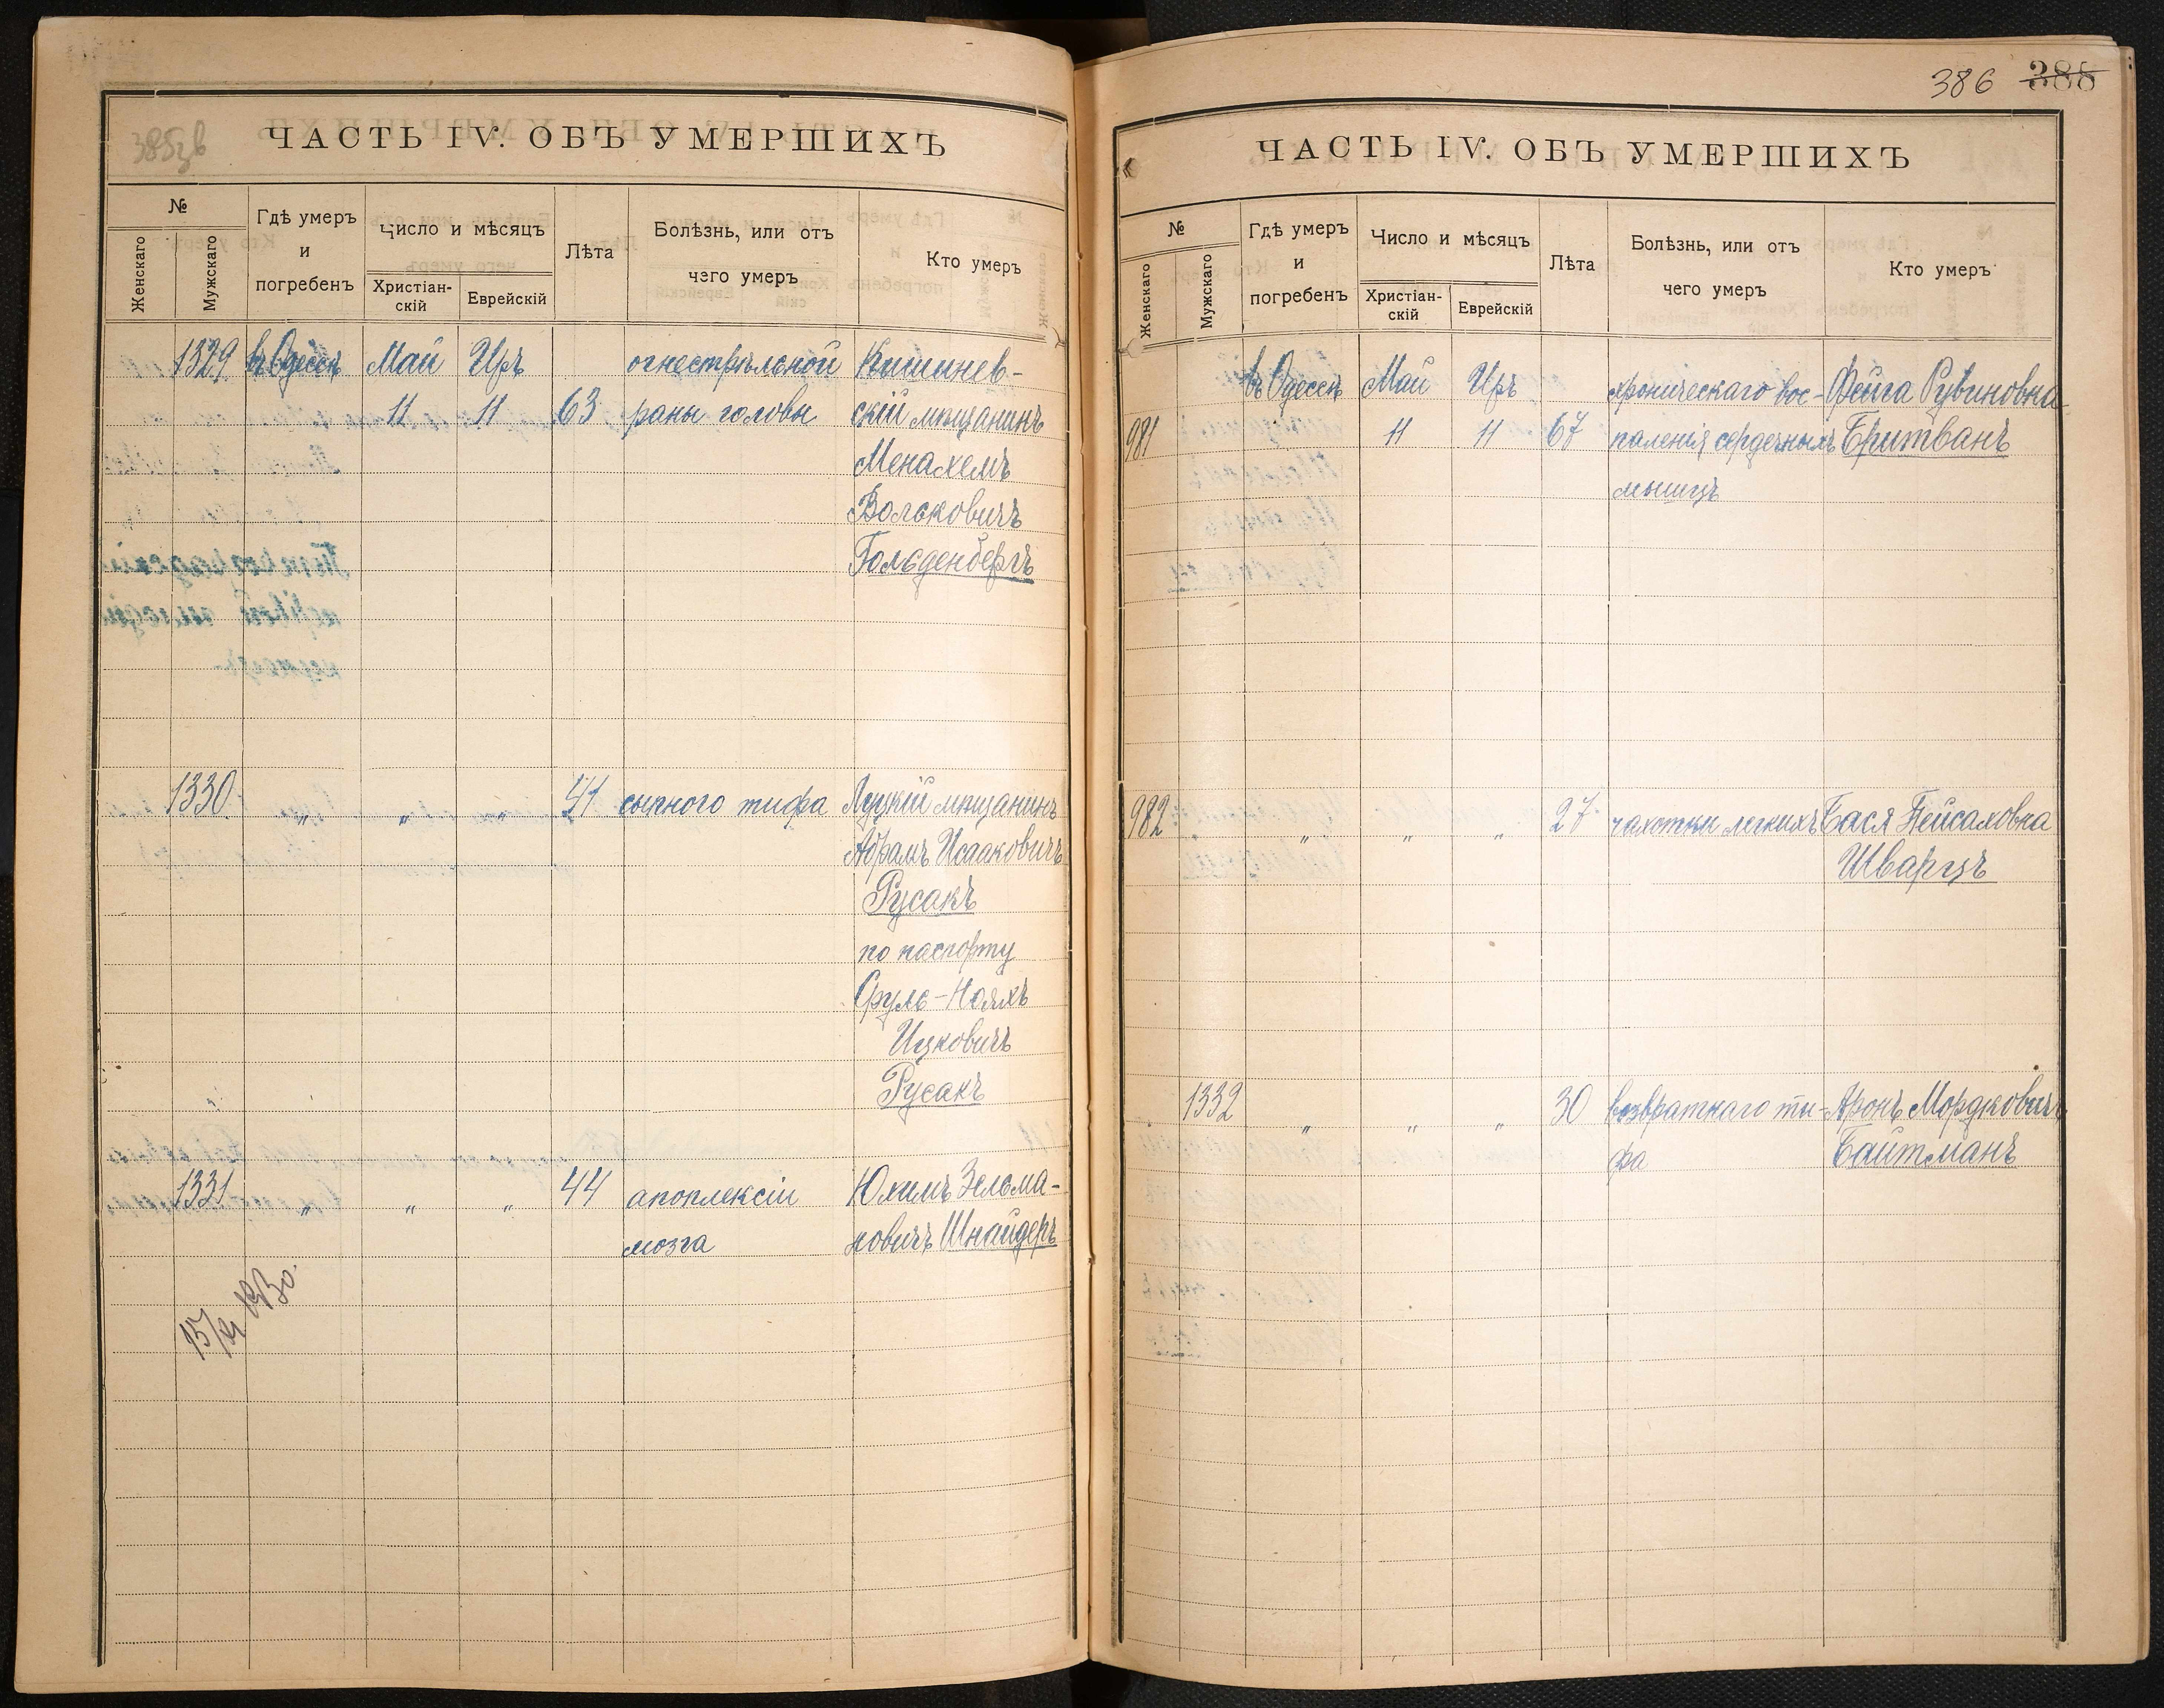 385зв
ЧАСТЬ IV. ОБЪ УМЕРШИХЪ
№
Женскаго
Мужскаго
Гдѣ умеръ
и
погребенъ
Число и мѣсяцъ
Христіан-
скій
Еврейскій
Лѣта
Болѣзнь, или отъ
чего умеръ
Кто умеръ
1329 въ Одессѣ Май Иръ огнестрѣльной Кишинев-
11 11 63 раны головы скій мѣщанинъ
Менахемъ
Вольковичъ
Гольденбергъ
1330 „ „ „ 41 сыпного тифа Луцкій мѣщанинъ
Абрамъ Исааковичъ
Русакъ
по паспорту
Сруль-Нояхъ
Ицковичъ
Русакъ
1331 „ „ „ 44 апоплексіи Юхимъ Зельма-
мозга новичъ Шнайдеръ
386 388
ЧАСТЬ IV. ОБЪ УМЕРШИХЪ
№
Женскаго
Мужскаго
Гдѣ умеръ
и
погребенъ
Число и мѣсяцъ
Христіан-
скій
Еврейскій
Лѣта
Болѣзнь, или отъ
чего умеръ
Кто умеръ
въ Одессѣ Май Иръ хроническаго вос- Фейга Рувиновна
981 11 11 67 паленія сердечныхъ Бритванъ
мышцъ
982 „ „ „ 27 чахотки легкихъ Бася Пейсаховна
Шварцъ
1332 „ „ „ 30 возвратнаго ти- Аронъ Мордковичъ
фа Байтманъ